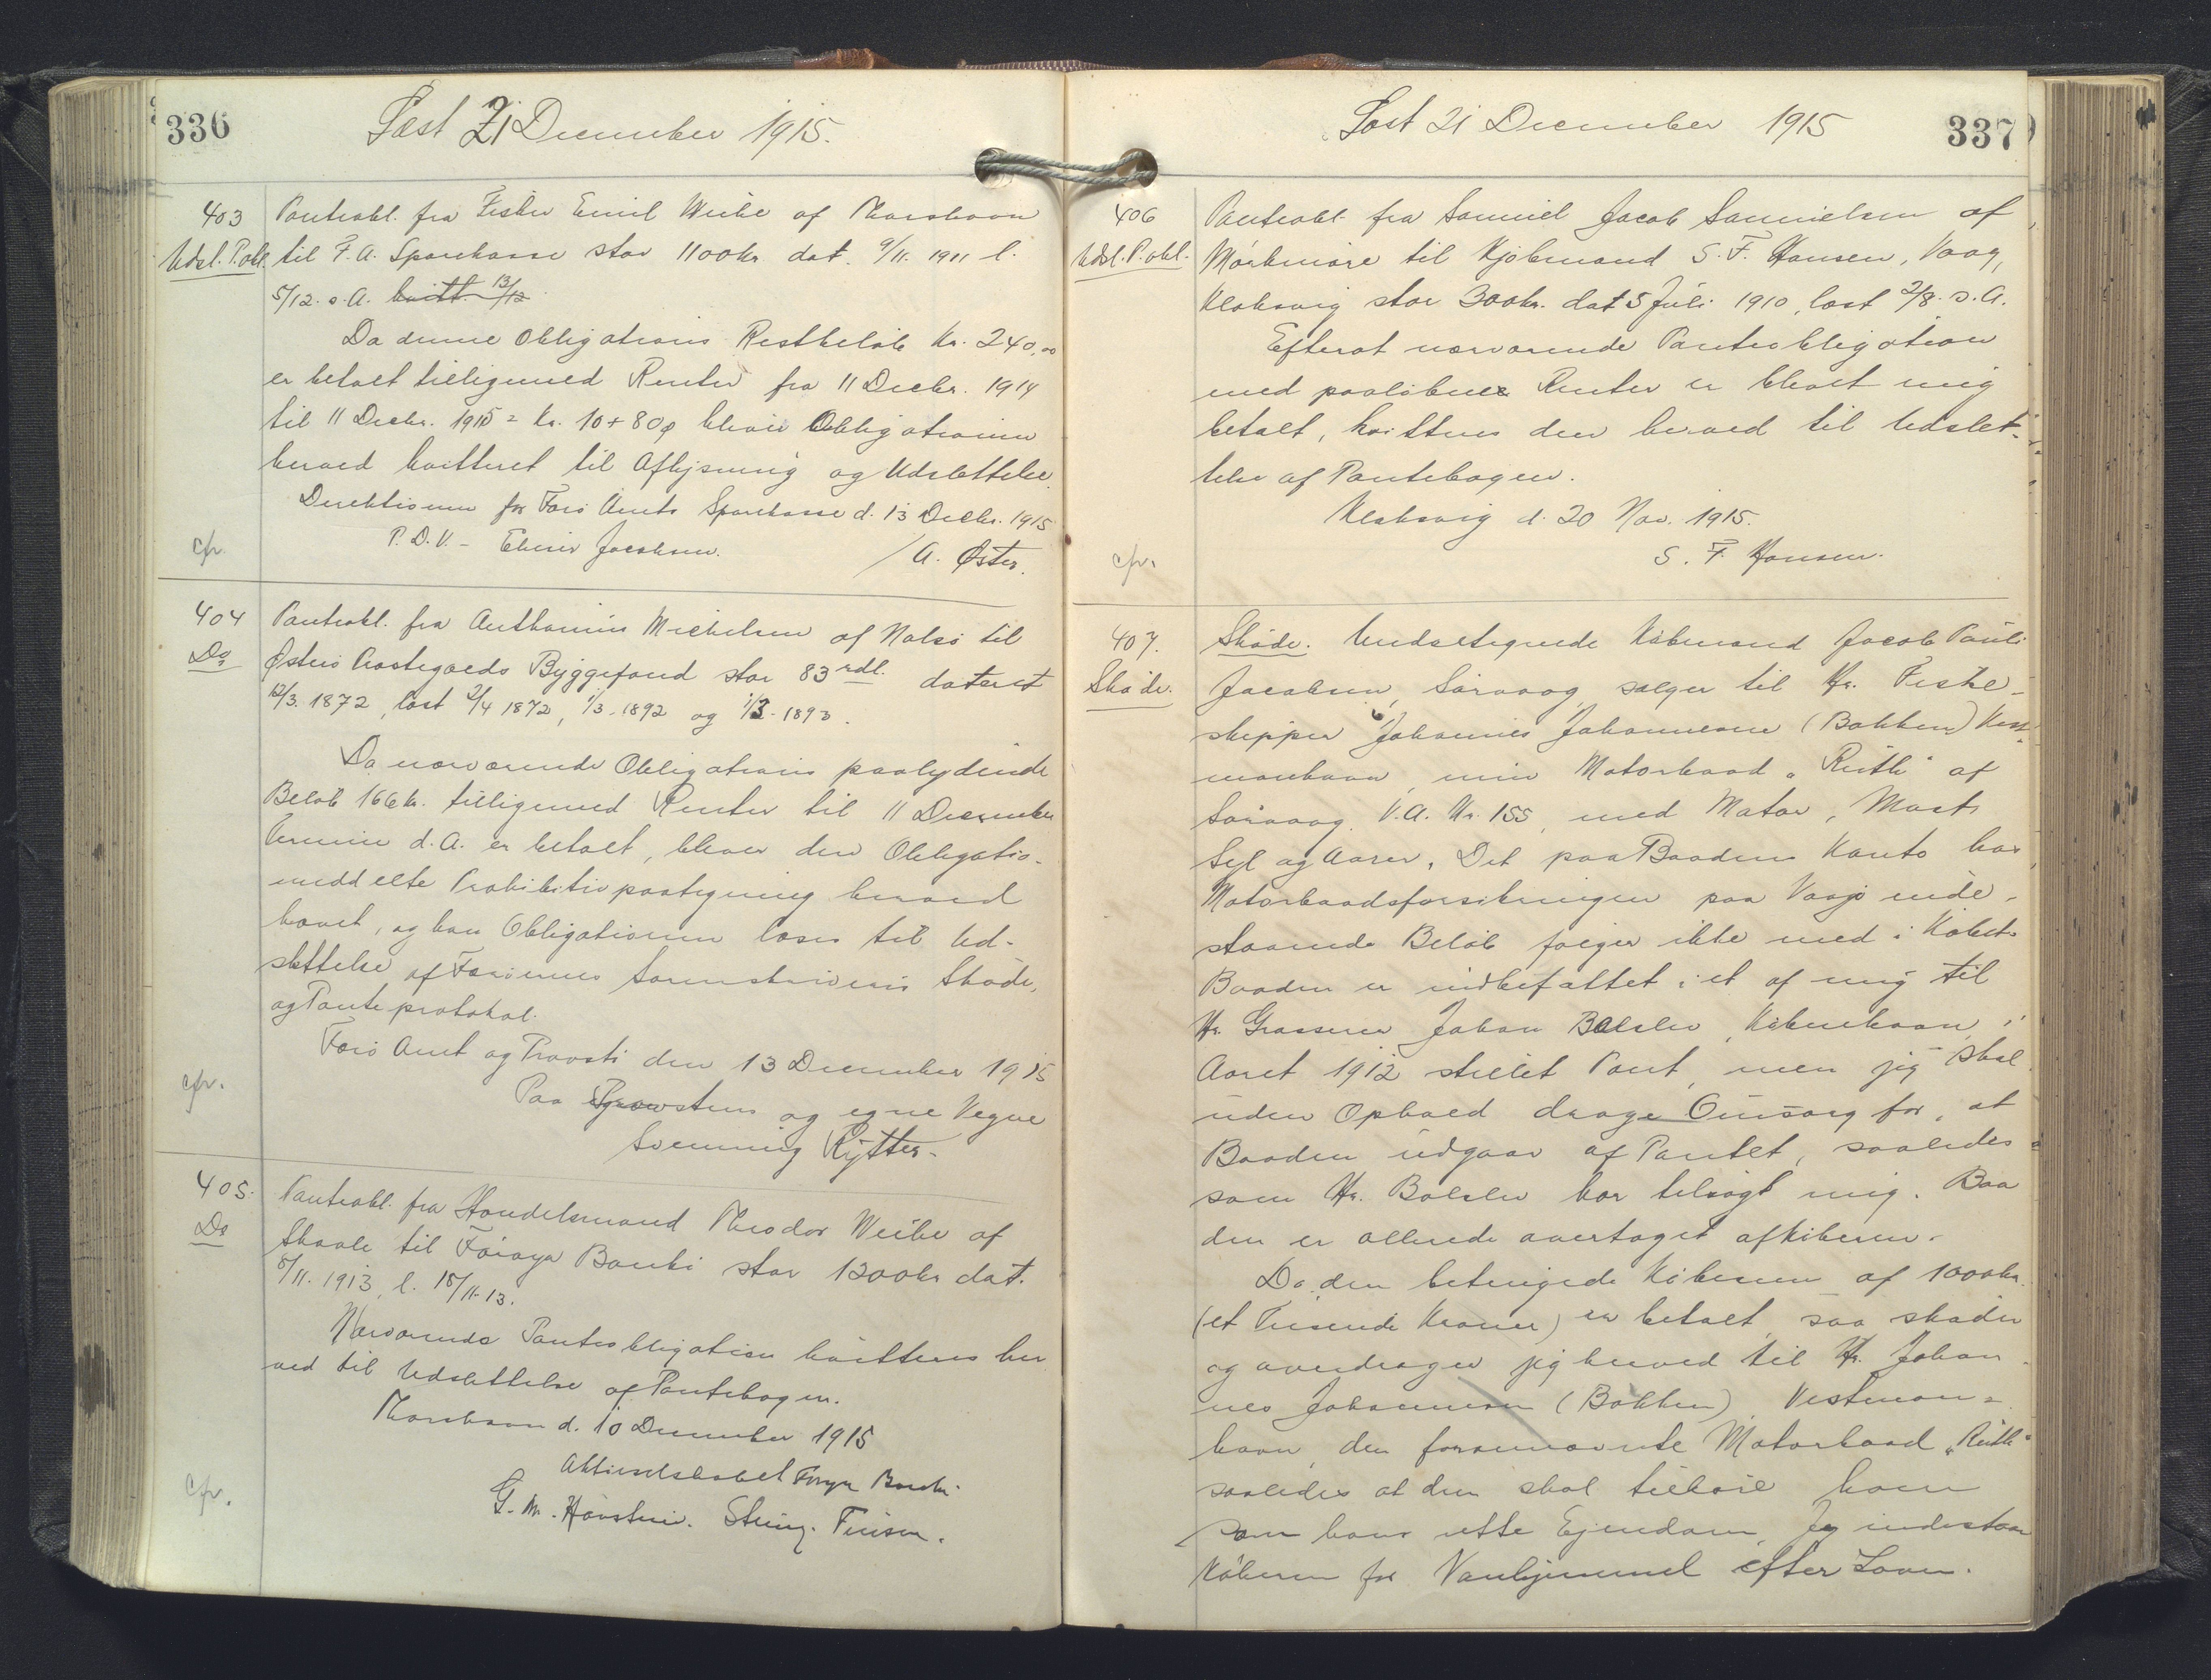 336
Læst 21 December 1915.
403
Udsl. P.obl.
Panteobl. fra Fisker Emil Weihe af Thorshavn
til F. A. Sparekasse stor 1100 kr dat. 9/11. 1911 l.
5/12. s. A. kvitt. 13/12
Da denne Obligations Restbeløb Kr. 240,00
er betalt tilligemed Renter fra 11 Decbr. 1914
til 11 Decbr. 1915 = Kr. 10 + 80 ø bliver Obligationen
herved kvitteret til Aflysning og Udslettelse
Direktionen for Færø Amts Sparekasse d. 13 Decbr. 1915
P. D. V. – Jacobsen.
/ A. Øster.
cfr.
404
Do
Panteobl. fra Anthonius Michelsen af Nolsø til
Østerø Præstegaards Byggefond stor 83 rdl. dateret
12/3. 1872, læst 2/4 1872, 1/3. 1892 og 1/3. 1893.
Da nærværende Obligations paalydende
Beløb 166 kr. tilligemed Renter til 11 December
Termin d. A. er betalt, bliver den Obligatio-
meddelte Prohibitivpaategning herved
hævet, og kan Obligationen læses til Ud-
slettelse af Færøernes Sorenskriveris Skøde,
og Panteprotokol.
Færø Amt og Provsti den 13 December 1915
Paa Provstens og egne Vegne
Svenning Rytter.
cfr.
405.
Do
Panteobl. fra Handelsmand Theodor Weihe af
Skaale til Føroya Banki stor 1300 kr dat.
8/11. 1913, l. 18/11-13.
Nærværende Panteobligation kvitteres her
ved til Udslettelse af Pantebogen.
Thorshavn d. 10 December 1915
Aktieselskabet Føroya Banki.
G. M. Steing.
cfr.
Læst 21 December 1915
337
406
Udsl. P.obl.
Panteobl. fra Samuel Jacob Samuelsen af
Mørkenøre til Kjøbmand S. F. Hansen, Vaag,
Klaksvig stor 300 kr. dat 5 Juli 1910, læst 2/8. s. A.
Efterat nærværende Panteobligation
med paaløbne Renter er blevet mig
betalt, kvitteres den herved til Udslet-
telse af Pantebogen.
Klaksvig d. 20 Nov. 1915.
S. F. Hansen.
cfr.
407.
Skøde.
Skøde. Undertegnede Købmand Jacob Pauli
Jacobsen, Sørvaag, sælger til Hr. Fiske-
skipper Johannes Johannesen (Bakken) Vest-
manhavn, min Motorbaad „Ruth“ af
Sørvaag. V. A. Nr. 155, med Motor, Mast,
Sejl og Aarer. Det paa Baadens Konto hos
Motorbaadsforsikringen paa Vaagø inde-
staaende Beløb følger ikke med i Købet.
Baaden er indbefattet i et af mig til
Hr. Grosserer Johan Balslev, København, i
Aaret 1912 stillet Pant, men jeg skal
uden Ophold drage Omsorg for, at
Baaden udgaar af Pantet, saaledes
som Hr. Balslev har tilsagt mig. Baa
den er allerede overtaget af Køberen.
Da den betingede Købesum af 1000 kr.
(et Tusende Kroner) er betalt, saa skøder
og overdrager jeg herved til Hr. Johan-
nes Johannesen (Bakken), Vestman-
havn, den forannævnte Motorbaad „Ruth“
saaledes at den skal tilhøre ham
som hans rette Ejendom. Jeg indestaar
Køberen for Vanhjemmel efter Loven.